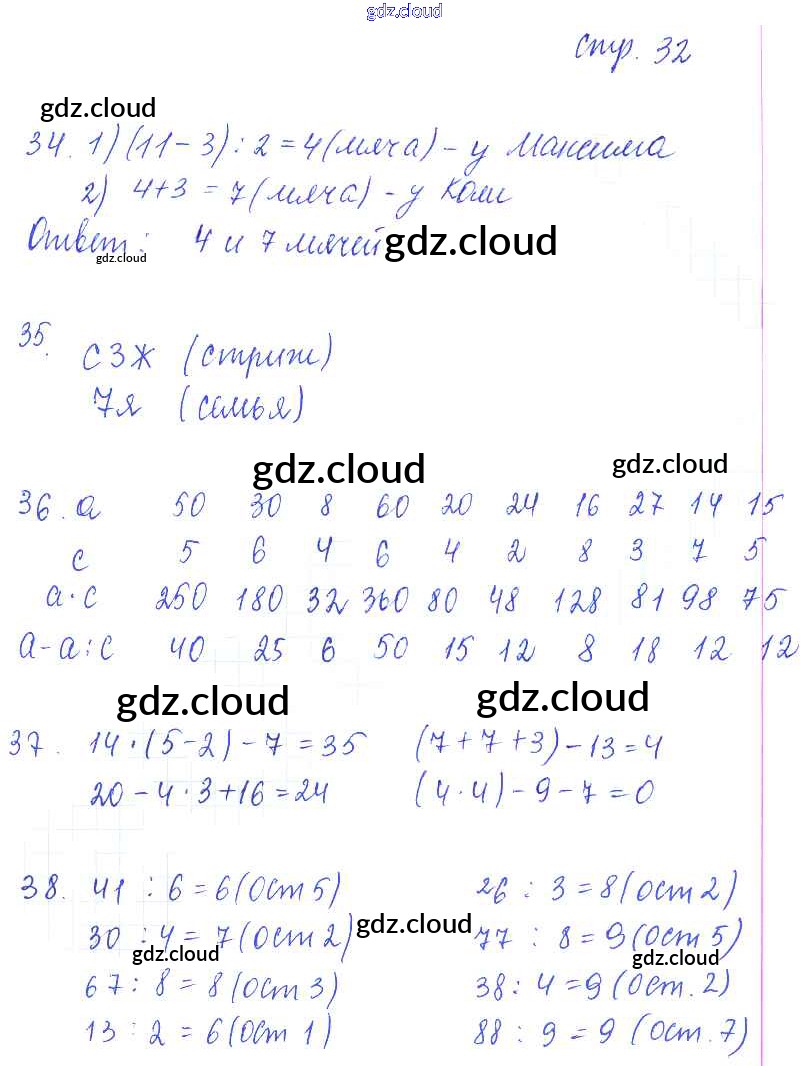 gdz.cloud
Стр. 32
gdz.cloud
34. 1) (11 - 3) : 2 = 4 (мяча) - у Максима
2) 4 + 3 = 7 (мяча) - у Коли
Ответ: 4 и 7 мячей gdz.cloud
gdz.cloud
35.
С 3 Ж (стриж)
7я (семья)
gdz.cloud gdz.cloud
36. a 50 30 8 60 20 24 16 27 14 15
c 5 6 4 6 4 2 8 3 7 5
a · c 250 180 32 360 80 48 128 81 98 75
a - a : c 40 25 6 50 15 12 8 18 12 12
gdz.cloud gdz.cloud
37. 14 · (5 - 2) - 7 = 35 (7 + 7 + 3) - 13 = 4
20 - 4 · 3 + 16 = 24 (4 · 4) - 9 - 7 = 0
38. 41 : 6 = 6 (ост 5) 26 : 3 = 8 (ост 2)
30 : 4 = 7 (ост 2) gdz.cloud 77 : 8 = 9 (ост 5)
gdz.cloud gdz.cloud
67 : 8 = 8 (ост 3) 38 : 4 = 9 (ост. 2)
13 : 2 = 6 (ост 1) 88 : 9 = 9 (ост. 7)